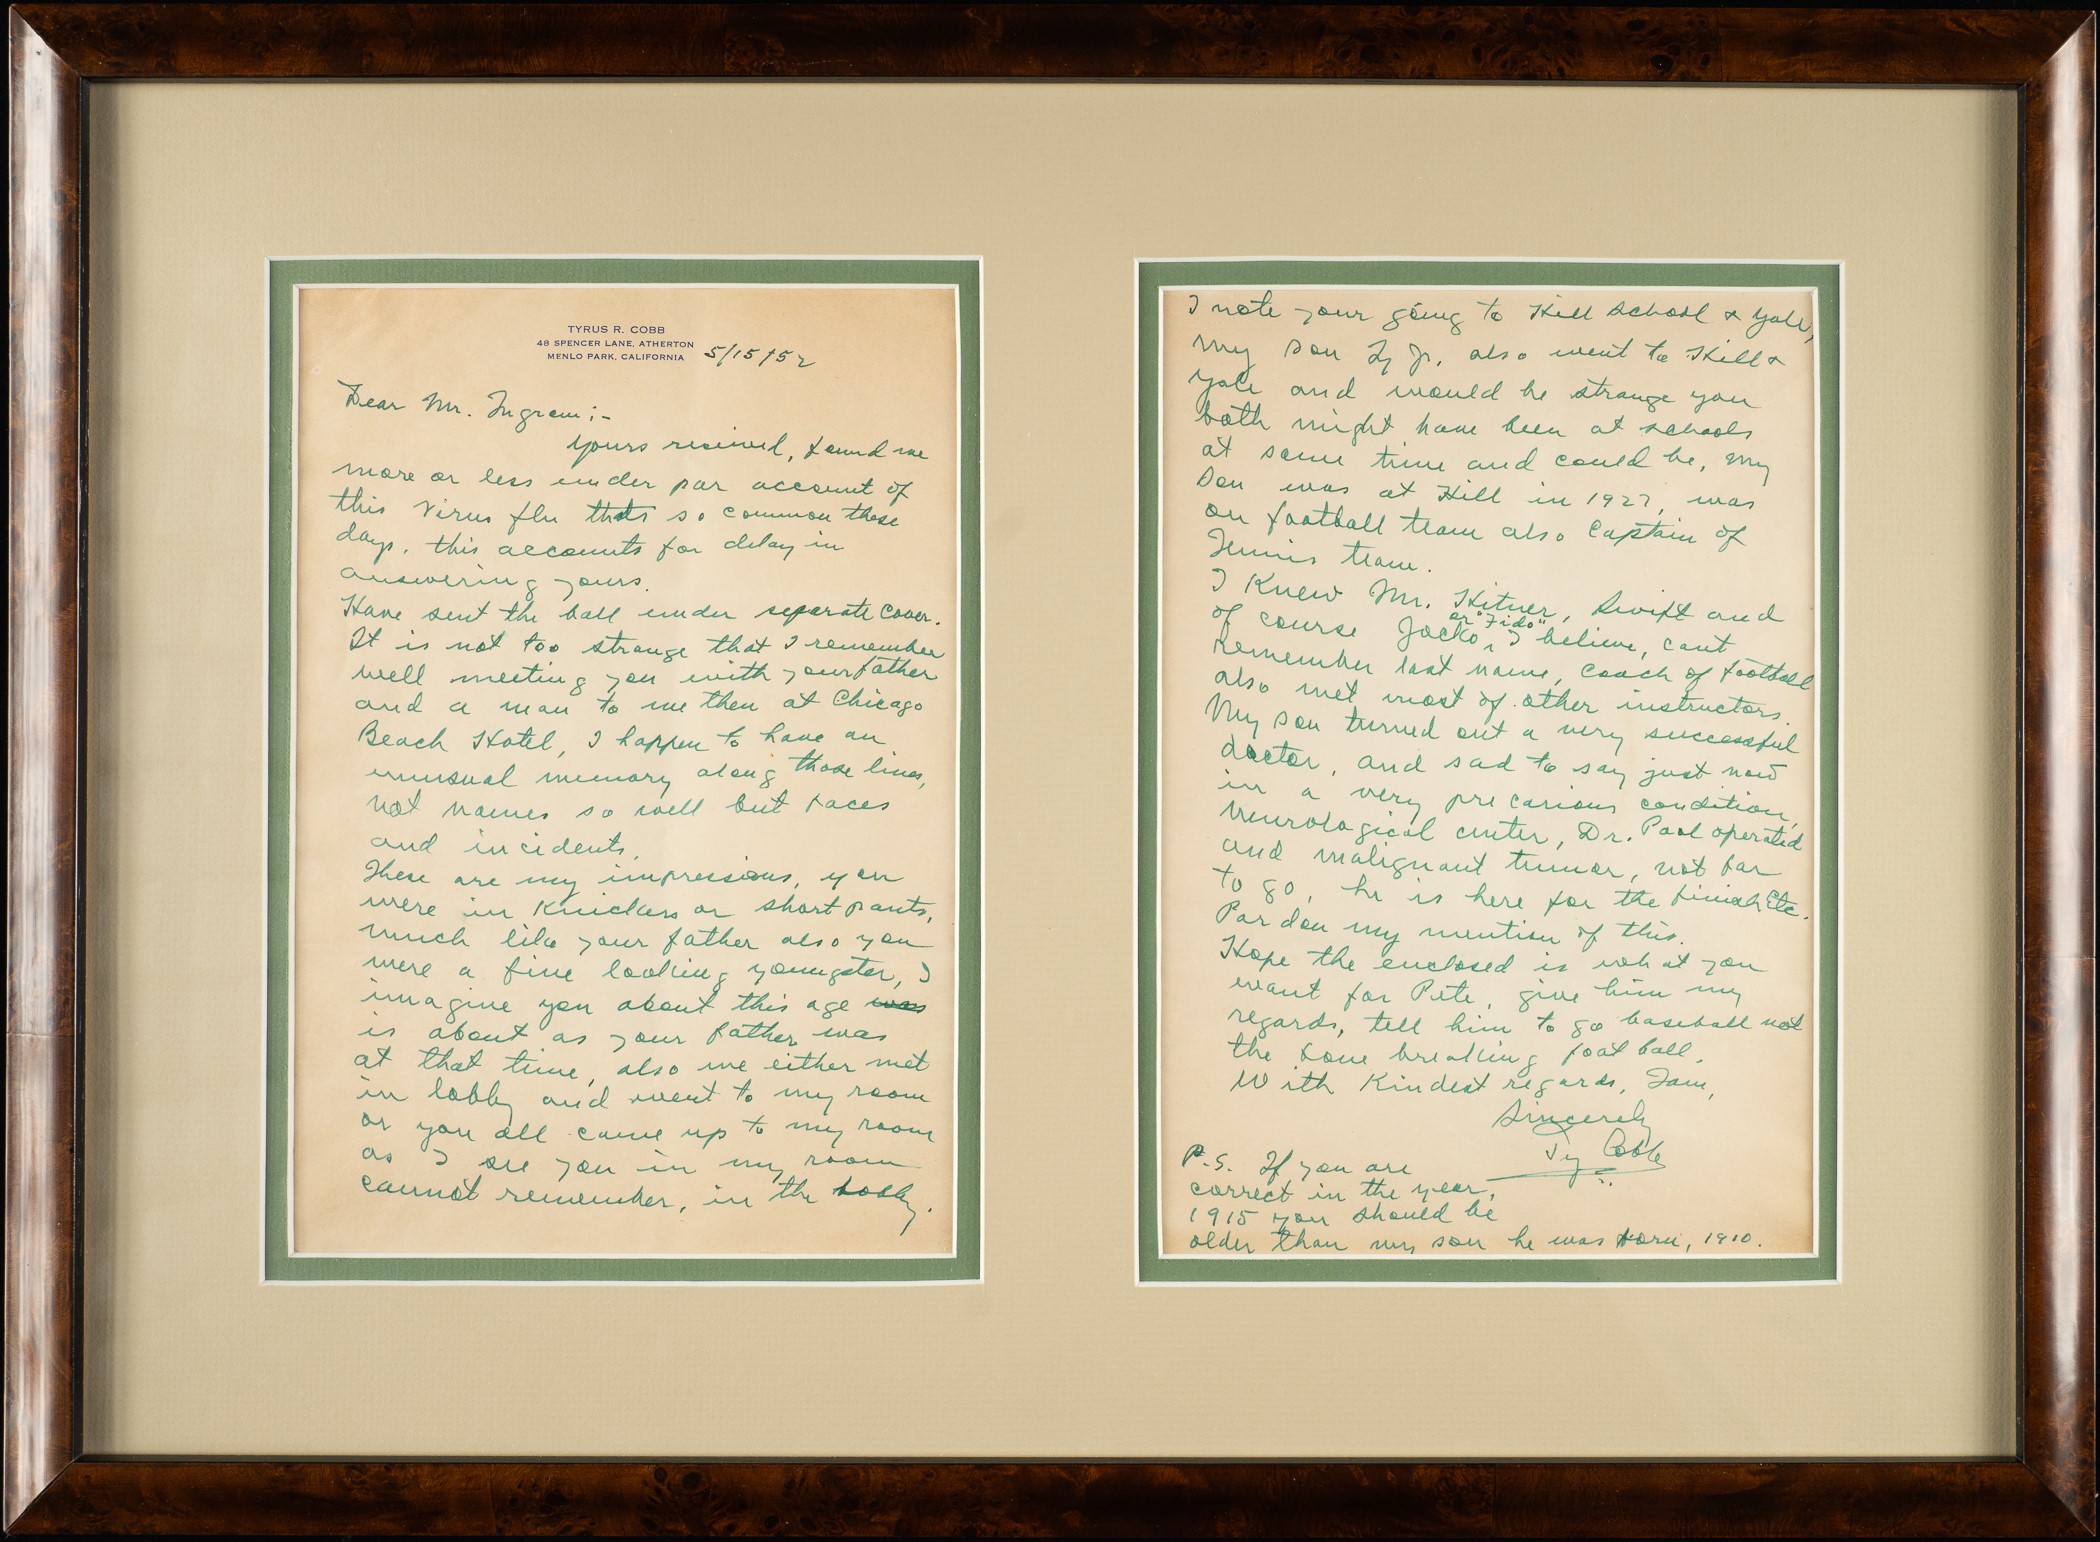 TYRUS R. COBB
48 SPENCER LANE, ATHERTON
MENLO PARK, CALIFORNIA
5/15/52
Dear Mr. Ingram;-
Yours received, found me
more or less under par account of
this Virus flu thats so common these
days, this accounts for delay in
answering yours.
Have sent the ball under separate cover.
It is not too strange that I remember
well meeting you with your father
and a man to me then at Chicago
Beach Hotel, I happen to have an
unusual memory along those lines,
not names so well but faces
and incidents.
These are my impressions, you
were in Knickers or short pants,
much like your father also you
were a fine looking youngster, I
imagine you about this age was
is about as your father was
at that time, also we either met
in lobby and went to my room
or you all came up to my room
as I see you in my room
cannot remember, in the lobby.
I note your going to Hill School & Yale,
my son Ty Jr. also went to Hill &
Yale and would be strange you
both might have been at schools
at same time and could be, my
son was at Hill in 1927, was
on football team also Captain of
Tennis team.
I Knew Mr. Hitner, Swift and
of course Jocko, or "Fido" I believe, cant
remember last name, coach of football
also met most of other instructors.
My son turned out a very successful
doctor, and sad to say just now
in a very precarious condition,
neurological center, Dr. Pool operated
and malignant tumor, not far
to go, he is here for the finish Etc.
Pardon my mention of this.
Hope the enclosed is what you
want for Pete, give him my
regards, tell him to go baseball not
the bone breaking foot ball.
With Kindest regards, I am,
Sincerely
Ty Cobb
P.S. If you are
correct in the year,
1915 you should be
older than my son he was born, 1910.